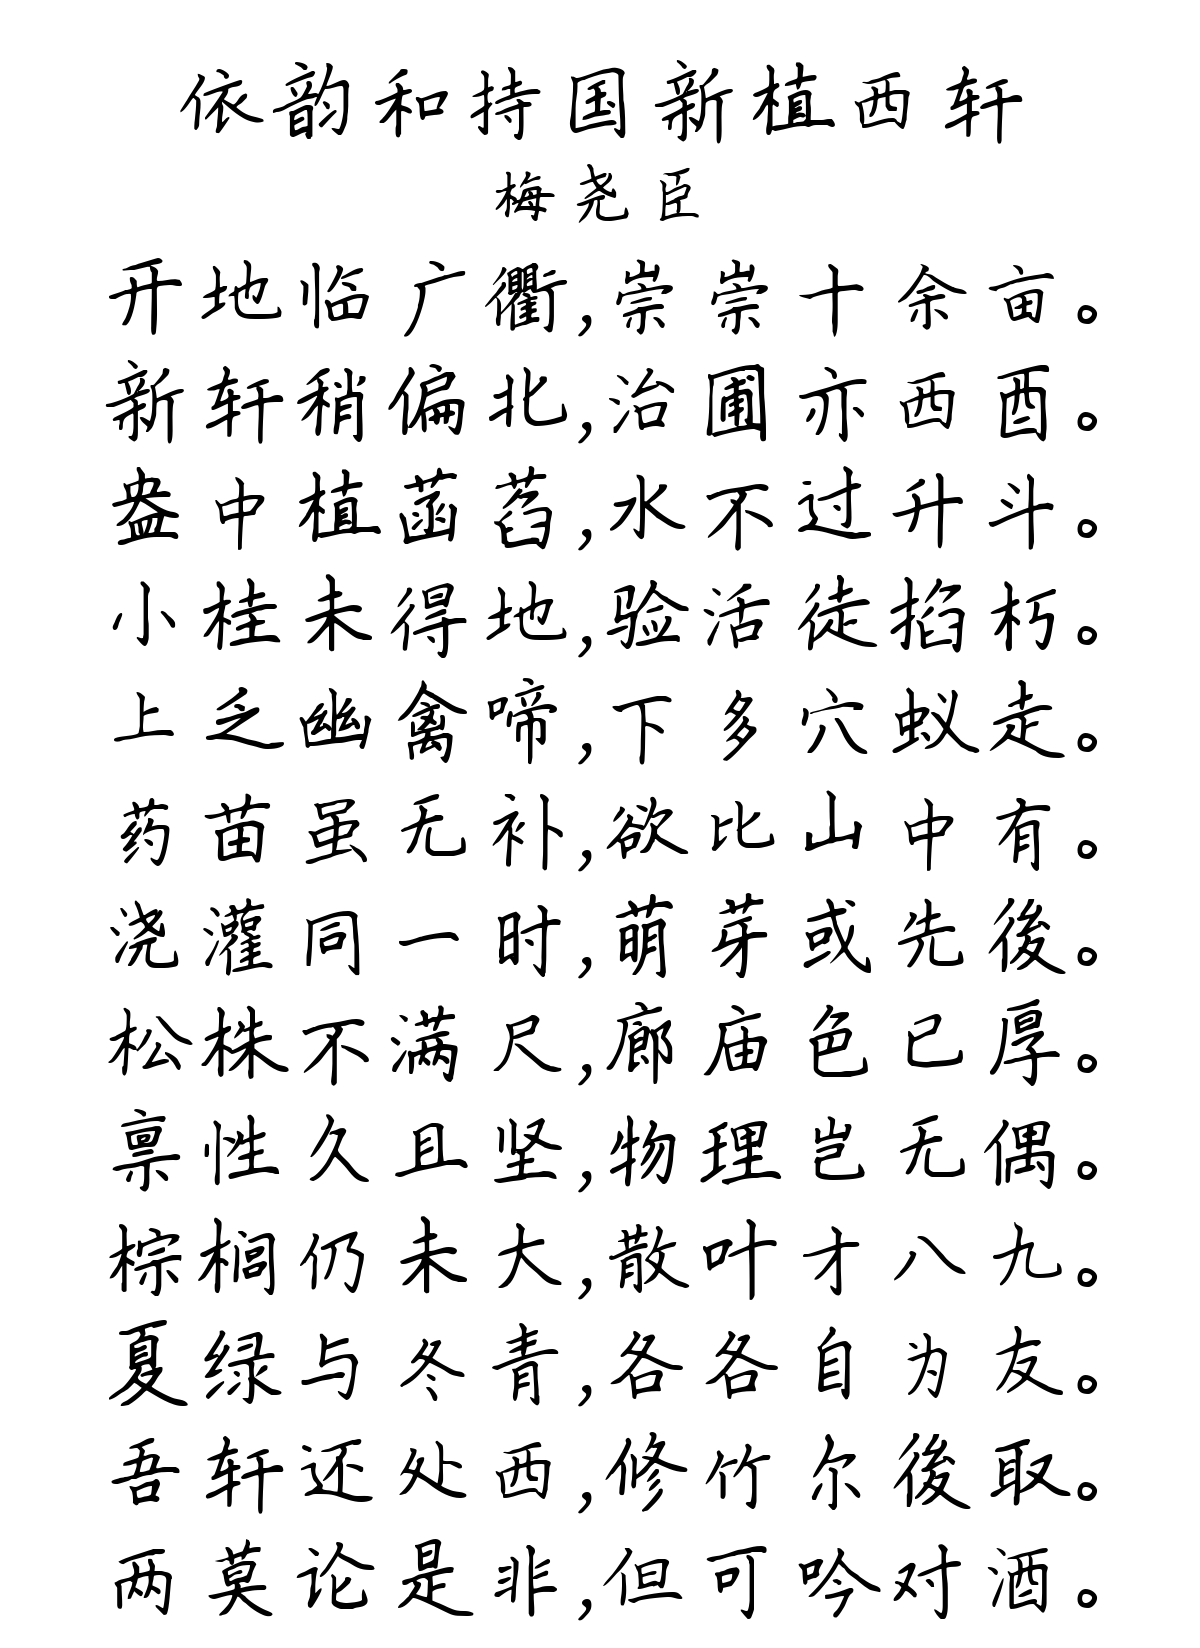 依韵和持国新植西轩
梅尧臣
开地临广衢,崇崇十余亩。
新轩稍偏北,治圃亦西酉。
盎中植菡萏,水不过升斗。
小桂未得地,验活徒掐朽。
上乏幽禽啼,下多穴蚁走。
药苗虽无补,欲比山中有。
浇灌同一时,萌芽或先後。
松株不满尺,廊庙色已厚。
禀性久且坚,物理岂无偶。
棕榈仍未大,散叶才八九。
夏绿与冬青,各各自为友。
吾轩还处西,修竹尔後取。
两莫论是非,但可吟对酒。